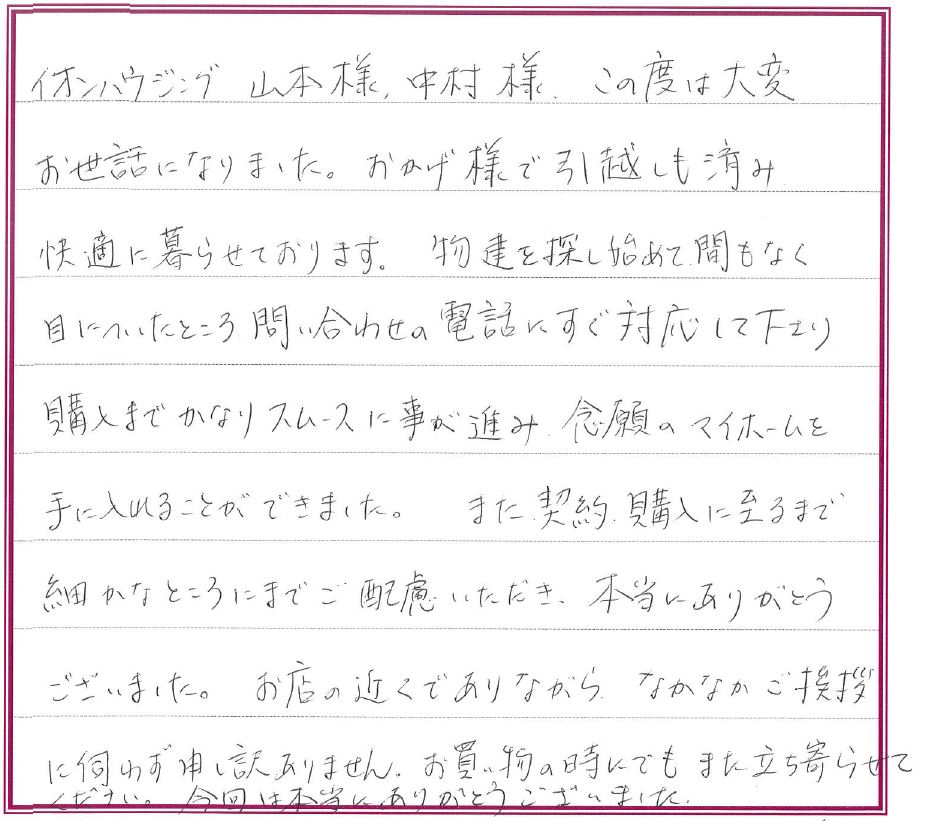 イオンハウジング 山本様、中村様、この度は大変
お世話になりました。おかげ様で引越しも済み
快適に暮らせております。 物建を探し始めて間もなく
目についたところ、問い合わせの電話にすぐ対応して下さり
購入までかなりスムースに事が進み、念願のマイホームを
手に入れることができました。 また、契約、購入に至るまで
細かなところにまでご配慮いただき、本当にありがとう
ございました。 お店の近くでありながら、なかなかご挨拶
に伺わず申し訳ありません。お買い物の時にでもまた立ち寄らせて
ください。今回は本当にありがとうございました。